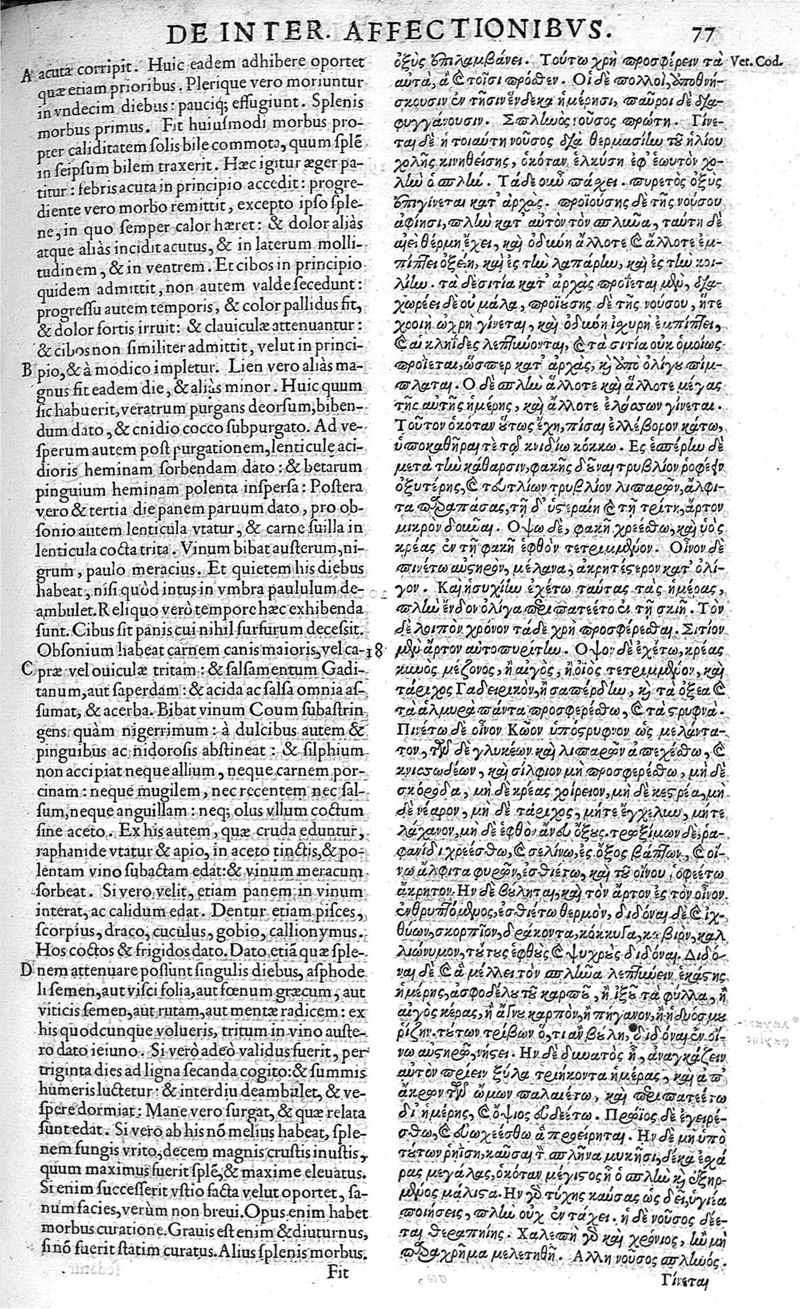 DE INTER. AFFECTIONIBVS. 77
A acuta corripit. Huic eadem adhibere oportet
quæ etiam prioribus. Plerique vero moriuntur
in vndecim diebus: pauciq; effugiunt. Splenis
morbus primus. Fit huiusmodi morbus pro-
pter caliditatem solis bile commota, quum splē
in seipsum bilem traxerit. Hæc igitur æger pa-
titur: febris acuta in principio accedit: progre-
diente vero morbo remittit, excepto ipso sple-
ne, in quo semper calor hæret: & dolor aliàs
atque aliàs incidit acutus, & in laterum molli-
tudinem, & in ventrem. Et cibos in principio
quidem admittit, non autem valde secedunt:
progressu autem temporis, & color pallidus fit,
& dolor fortis irruit: & clauiculæ attenuantur:
& cibos non similiter admittit, velut in princi-
B pio, & à modico impletur. Lien vero aliàs ma-
gnus fit eadem die, & aliàs minor. Huic quum
sic habuerit, veratrum purgans deorsum, biben-
dum dato, & cnidio cocco subpurgato. Ad ve-
sperum autem post purgationem, lenticulę aci-
dioris heminam sorbendam dato: & betarum
pinguium heminam polenta inspersa: Postera
vero & tertia die panem paruum dato, pro ob-
sonio autem lenticula vtatur, & carne suilla in
lenticula cocta trita. Vinum bibat austerum, ni-
grum, paulo meracius. Et quietem his diebus
habeat, nisi quòd intus in vmbra paululum de-
ambulet. Reliquo verò tempore hæc exhibenda
sunt. Cibus sit panis cui nihil furfurum decessit.
Obsonium habeat carnem canis maioris, vel ca- 18
C præ vel ouiculæ tritam: & salsamentum Gadi-
tanum, aut saperdam: & acida ac salsa omnia as-
sumat, & acerba. Bibat vinum Coum substrin
gens quàm nigerrimum: à dulcibus autem &
pinguibus ac nidorosis abstineat: & silphium
non accipiat neque allium, neque carnem por-
cinam: neque mugilem, nec recentem nec sal-
sum, neque anguillam: neq; olus vllum coctum
sine aceto. Ex his autem, quæ cruda eduntur,
raphanide vtatur & apio, in aceto tinctis, & po-
lentam vino subactam edat: & vinum meracum
sorbeat. Si vero velit, etiam panem in vinum
interat, ac calidum edat. Dentur etiam pisces,
scorpius, draco, cuculus, gobio, callionymus.
Hos coctos & frigidos dato. Dato etiã quæ sple-
D nem attenuare possunt singulis diebus, asphode
li semen, aut visci folia, aut fœnum græcum, aut
viticis semen, aut rutam, aut mentæ radicem: ex
his quodcunque volueris, tritum in vino auste-
ro dato ieiuno. Si verò adeò validus fuerit, per
triginta dies ad ligna secanda cogito: & summis
humeris luctetur: & interdiu deambulet, & ve-
spere dormiat: Mane vero surgat, & quæ relata
sunt edat. Si vero ab his nō melius habeat, sple-
nem fungis vrito, decem magnis crustis inustis,
quum maximus fuerit splē, & maxime eleuatus.
Si enim successerit vstio facta velut oportet, sa-
num facies, verùm non breui. Opus enim habet
morbus curatione. Grauis est enim & diuturnus,
si nō fuerit statim curatus. Alius splenis morbus.
Fit
ὀξὺς ἐπιλαμβάνει. Τούτῳ χρὴ προσφέρειν τὰ Vet. Cod.
αὐτὰ, ἃ καὶ τοῖσι πρόσθεν. Οἱ δὲ πολλοὶ, ὑποθνή-
σκουσιν ἐν τῇσιν ἕνδεκα ἡμέρῃσι, παῦροι δὲ δια-
φυγγάνουσιν. Σπληνὸς νοῦσος πρώτη. Γίνε-
ται δὲ ἡ τοιαύτη νοῦσος διὰ θερμασίην τοῦ ἡλίου
χολῆς κινηθείσης, ὁκόταν ἑλκύσῃ ἐφ' ἑωυτὸν χο-
λὴν ὁ σπλήν. Τάδε οὖν πάσχει. πυρετὸς ὀξὺς
ἐπιγίνεται κατ' ἀρχάς. προϊούσης δὲ τῆς νούσου
ἀφίησι, πλὴν κατ' αὐτὸν τὸν σπλῆνα, ταύτῃ δὲ
αἰεὶ θέρμη ἔχει, καὶ ὀδύνη ἄλλοτε καὶ ἄλλοτε ἐμ-
πίπτει ὀξείη, καὶ ἐς τὴν λαπάρην, καὶ ἐς τὴν κοι-
λίην. τὰ δὲ σιτία κατ' ἀρχὰς προΐεται μὲν, δια-
χωρέει δὲ οὐ μάλα, προϊούσης δὲ τῆς νούσου, ἥτε
χροιὴ ὠχρὴ γίνεται, καὶ ὀδύνη ἰσχυρὴ ἐμπίπτει,
καὶ αἱ κληῖδες λεπτύνονται, καὶ τὰ σιτία οὐκ ὁμοίως
προΐεται, ὥσπερ κατ' ἀρχὰς, καὶ ὑπὸ ὀλίγου πίμ-
πλαται. Ὁ δὲ σπλὴν ἄλλοτε καὶ ἄλλοτε μέγας
τῆς αὐτῆς ἡμέρης, καὶ ἄλλοτε ἐλάσσων γίνεται.
Τοῦτον ὁκόταν οὕτως ἔχῃ, πῖσαι ἑλλέβορον κάτω,
ὑποκαθῆραί τε τῷ κνιδίῳ κόκκῳ. Ἐς ἑσπέρην δὲ
μετὰ τὴν κάθαρσιν, φακῆς δοῦναι τρυβλίον ῥοφεῖν
ὀξυτέρης, καὶ τευτλίων τρυβλίον λιπαρῶν, ἄλφι-
τα παραπάσας, τῇ δ' ὑστεραίῃ καὶ τῇ τρίτῃ, ἄρτον
μικρὸν δοῦναι. Ὄψῳ δὲ, φακῇ χρεέσθω, καὶ ὑὸς
κρέας ἐν τῇ φακῇ ἑφθὸν τετριμμένον. Οἶνον δὲ
πινέτω αὐστηρὸν, μέλανα, ἀκρητέστερον κατ' ὀλί-
γον. Καὶ ἡσυχίην ἐχέτω ταύτας τὰς ἡμέρας,
πλὴν ἔνδον ὀλίγα περιπατεέτω ἐν τῇ σκιῇ. Τὸν
δὲ λοιπὸν χρόνον τάδε χρὴ προσφέρεσθαι. Σιτίον
μὲν ἄρτον αὐτοπυρίτην. Ὄψον δὲ ἐχέτω, κρέας
κυνὸς μέζονος, ἢ αἰγὸς, ἢ οἰὸς τετριμμένον, καὶ
τάριχος Γαδειρικὸν, ἢ σαπέρδην, καὶ τὰ ὀξέα καὶ
τὰ ἁλμυρὰ πάντα προσφερέσθω, καὶ τὰ στρυφνά.
Πινέτω δὲ οἶνον Κῶον ὑπόστρυφνον ὡς μελάντα-
τον, τῶν δὲ γλυκέων καὶ λιπαρῶν ἀπεχέσθω, καὶ
κνισσωδέων, καὶ σίλφιον μὴ προσφερέσθω, μὴ δὲ
σκόροδα, μὴ δὲ κρέας χοίρειον, μὴ δὲ κεστρέα, μὴ
δὲ νέαρον, μὴ δὲ τάριχος, μήτε ἔγχελυν, μήτε
λάχανον, μὴ δὲ ἑφθὸν ἄνευ ὄξους. τρωξίμων δὲ ῥα-
φανίδι χρεέσθω, καὶ σελίνῳ, ἐς ὄξος βάπτων, καὶ οἴ-
νῳ ἄλφιτα φυρῶν, ἐσθιέτω, καὶ τοῦ οἴνου ῥοφεέτω
ἄκρητον. Ἢν δὲ βούληται, καὶ τὸν ἄρτον ἐς τὸν οἶνον
ἐνθρυπτόμενος, ἐσθιέτω θερμὸν, διδόναι δὲ καὶ ἰχ-
θύων, σκορπίον, δράκοντα, κόκκυγα, κωβιὸν, καλ
λιώνυμον, τούτους ἑφθοὺς καὶ ψυχροὺς διδόναι. Διδό-
ναι δὲ καὶ ἃ μέλλει τὸν σπλῆνα λεπτύνειν ἑκάστης
ἡμέρης, ἀσφοδέλου τοῦ καρποῦ, ἢ ἰξοῦ τὰ φύλλα, ἢ
αἰγὸς κέρας, ἢ ἄγνου καρπὸν, ἢ πήγανον, ἢ ἡδυόσμου
ῥίζην. τούτων τρίβων ὅ, τι ἂν βούλῃ, διδόναι ἐν οἴ-
νῳ αὐστηρῷ, νήστει. Ἢν δὲ δυνατὸς ᾖ, ἀναγκάζειν
αὐτὸν πρίειν ξύλα τριήκοντα ἡμέρας, καὶ ἀπ'
ἄκρων τῶν ὤμων παλαιέτω, καὶ περιπατεέτω
δι' ἡμέρης, καὶ ὀψίος εὑδέτω. Πρωῒος δὲ ἐγειρέ-
σθω, καὶ εὐωχεέσθω ἃ προείρηται. Ἢν δὲ μὴ ὑπὸ
τούτων ῥηΐσῃ, καῦσαι τὸν σπλῆνα μύκησι, δέκα ἐσχά-
ρας μεγάλας, ὁκόταν μέγιστος ᾖ ὁ σπλὴν καὶ ἐξῃρ-
μένος μάλιστα. Ἢν γὰρ τύχῃς καύσας ὡς δεῖ, ὑγιέα
ποιήσεις, πλὴν οὐχ ἐν τάχει. ἡ δὲ νοῦσος δέε-
ται θεραπηίης. Χαλεπὴ γὰρ καὶ χρόνιος, ἢν μὴ
παραχρῆμα μελετηθῇ. Ἄλλη νοῦσος σπληνός.
Γίνεται